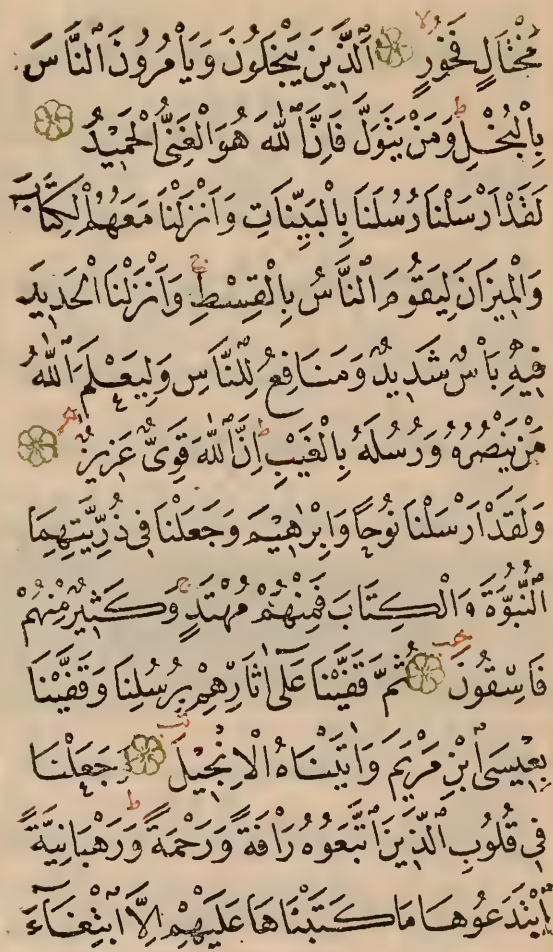 مُخْتَالٍ فَخُورٍ ۙ اَلَّذِينَ يَبْخَلُونَ وَيَأْمُرُونَ النَّاسَ
بِالْبُخْلِ ۗ وَمَنْ يَتَوَلَّ فَاِنَّ اللّٰهَ هُوَ الْغَنِيُّ الْحَمِيدُ
لَقَدْ اَرْسَلْنَا رُسُلَنَا بِالْبَيِّنَاتِ وَاَنْزَلْنَا مَعَهُمُ الْكِتَابَ
وَالْمِيزَانَ لِيَقُومَ النَّاسُ بِالْقِسْطِ ۚ وَاَنْزَلْنَا الْحَدِيدَ
فِيهِ بَأْسٌ شَدِيدٌ وَمَنَافِعُ لِلنَّاسِ وَلِيَعْلَمَ اللّٰهُ
مَنْ يَنْصُرُهُ وَرُسُلَهُ بِالْغَيْبِ ط اِنَّ اللّٰهَ قَوِيٌّ عَزِيزٌ
وَلَقَدْ اَرْسَلْنَا نُوحًا وَاِبْرٰهِيمَ وَجَعَلْنَا فِي ذُرِّيَّتِهِمَا
النُّبُوَّةَ وَالْكِتَابَ فَمِنْهُمْ مُهْتَدٍ ۚ وَكَثِيرٌ مِنْهُمْ
فَاسِقُونَ ثُمَّ قَفَّيْنَا عَلٰى اٰثَارِهِمْ بِرُسُلِنَا وَقَفَّيْنَا
بِعِيسَى ابْنِ مَرْيَمَ وَاٰتَيْنَاهُ الْاِنْجِيلَ وَجَعَلْنَا
فِي قُلُوبِ الَّذِينَ اتَّبَعُوهُ رَاْفَةً وَرَحْمَةً ط وَرَهْبَانِيَّةً
اِبْتَدَعُوهَا مَا كَتَبْنَاهَا عَلَيْهِمْ اِلَّا ابْتِغَآءَ